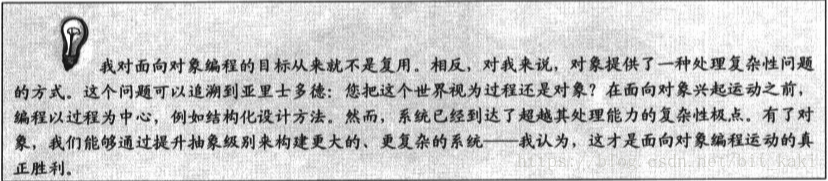 我对面向对象编程的目标从来就不是复用。相反，对我来说，对象提供了一种处理复杂性问题
的方式。这个问题可以追溯到亚里士多德：您把这个世界视为过程还是对象？在面向对象兴起运动之前，
编程以过程为中心，例如结构化设计方法。然而，系统已经到达了超越其处理能力的复杂性极点。有了对
象，我们能够通过提升抽象级别来构建更大的、更复杂的系统——我认为，这才是面向对象编程运动的真
正胜利。